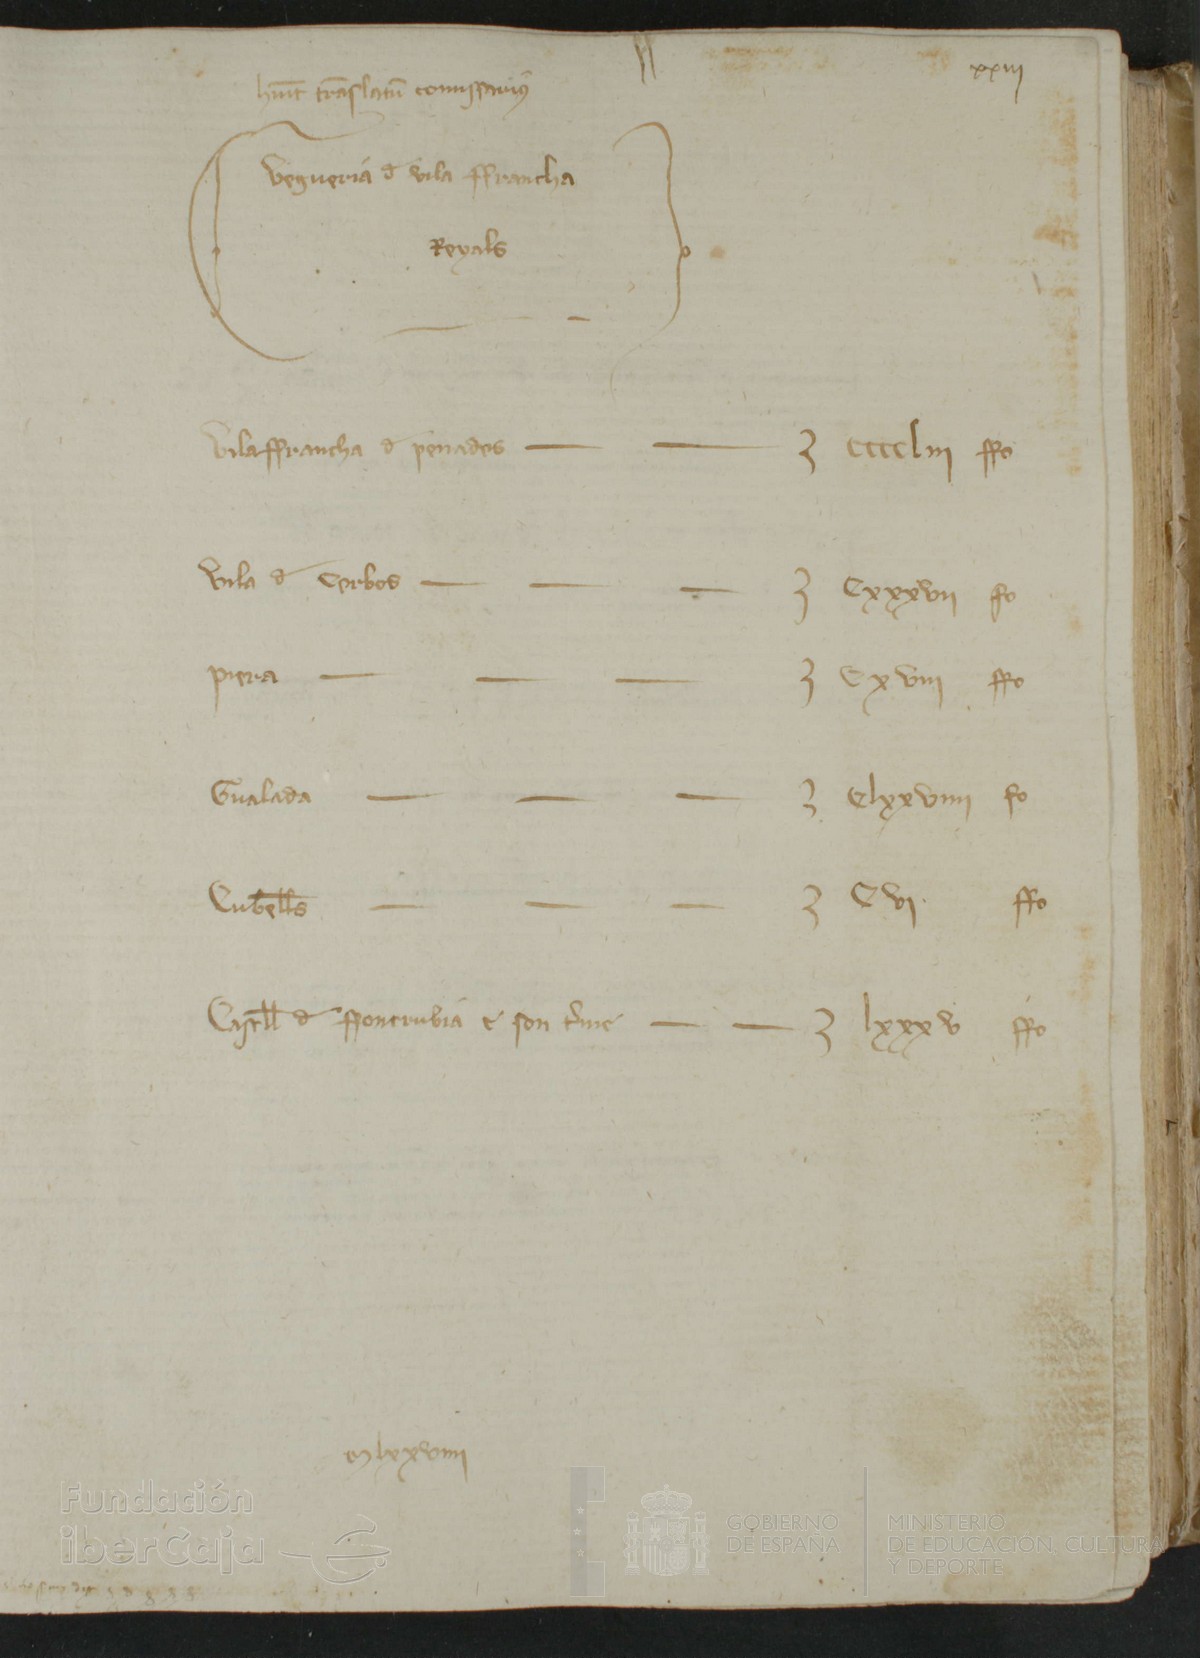 xxiii
hunt translatum comissarius
Vegueria d vila ffrancha
Reyals
Vilaffrancha d penades — — 3 CCCCliii ffo
Vila d Cerbos — — — 3 Cxxxvii fo
piera — — — 3 Cxviii ffo
Gualada — — — 3 Clxxviiii fo
Cubells — — — 3 Cvi. ffo
Castll d ffontrubia e son t'me — — 3 lxxxv ffo
mlxxviiii
Fundación
iberCaja
GOBIERNO
DE ESPAÑA
MINISTERIO
DE EDUCACIÓN, CULTURA
Y DEPORTE